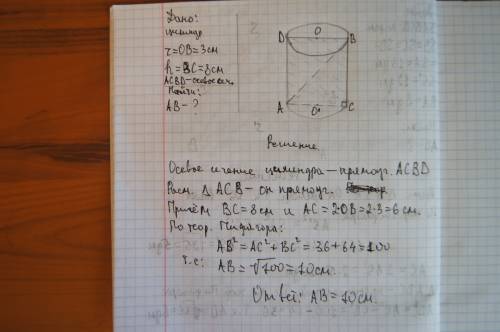 Дано:
цилиндр
r=OB=3см
h=BC=8см
ACBD-осевое сеч.
Найти:
AB-?
D O B
A O' C
Решение.
Осевое сечение цилиндра-прямоуг. ACBD
Расм. Δ ACB-он прямоуг.
Причём BC=8см и AC=2·OB=2·3=6см.
По теор. Пифагора:
AB²=AC²+BC²=36+64=100
т.е: AB=√100=10см
Ответ: AB=10см.